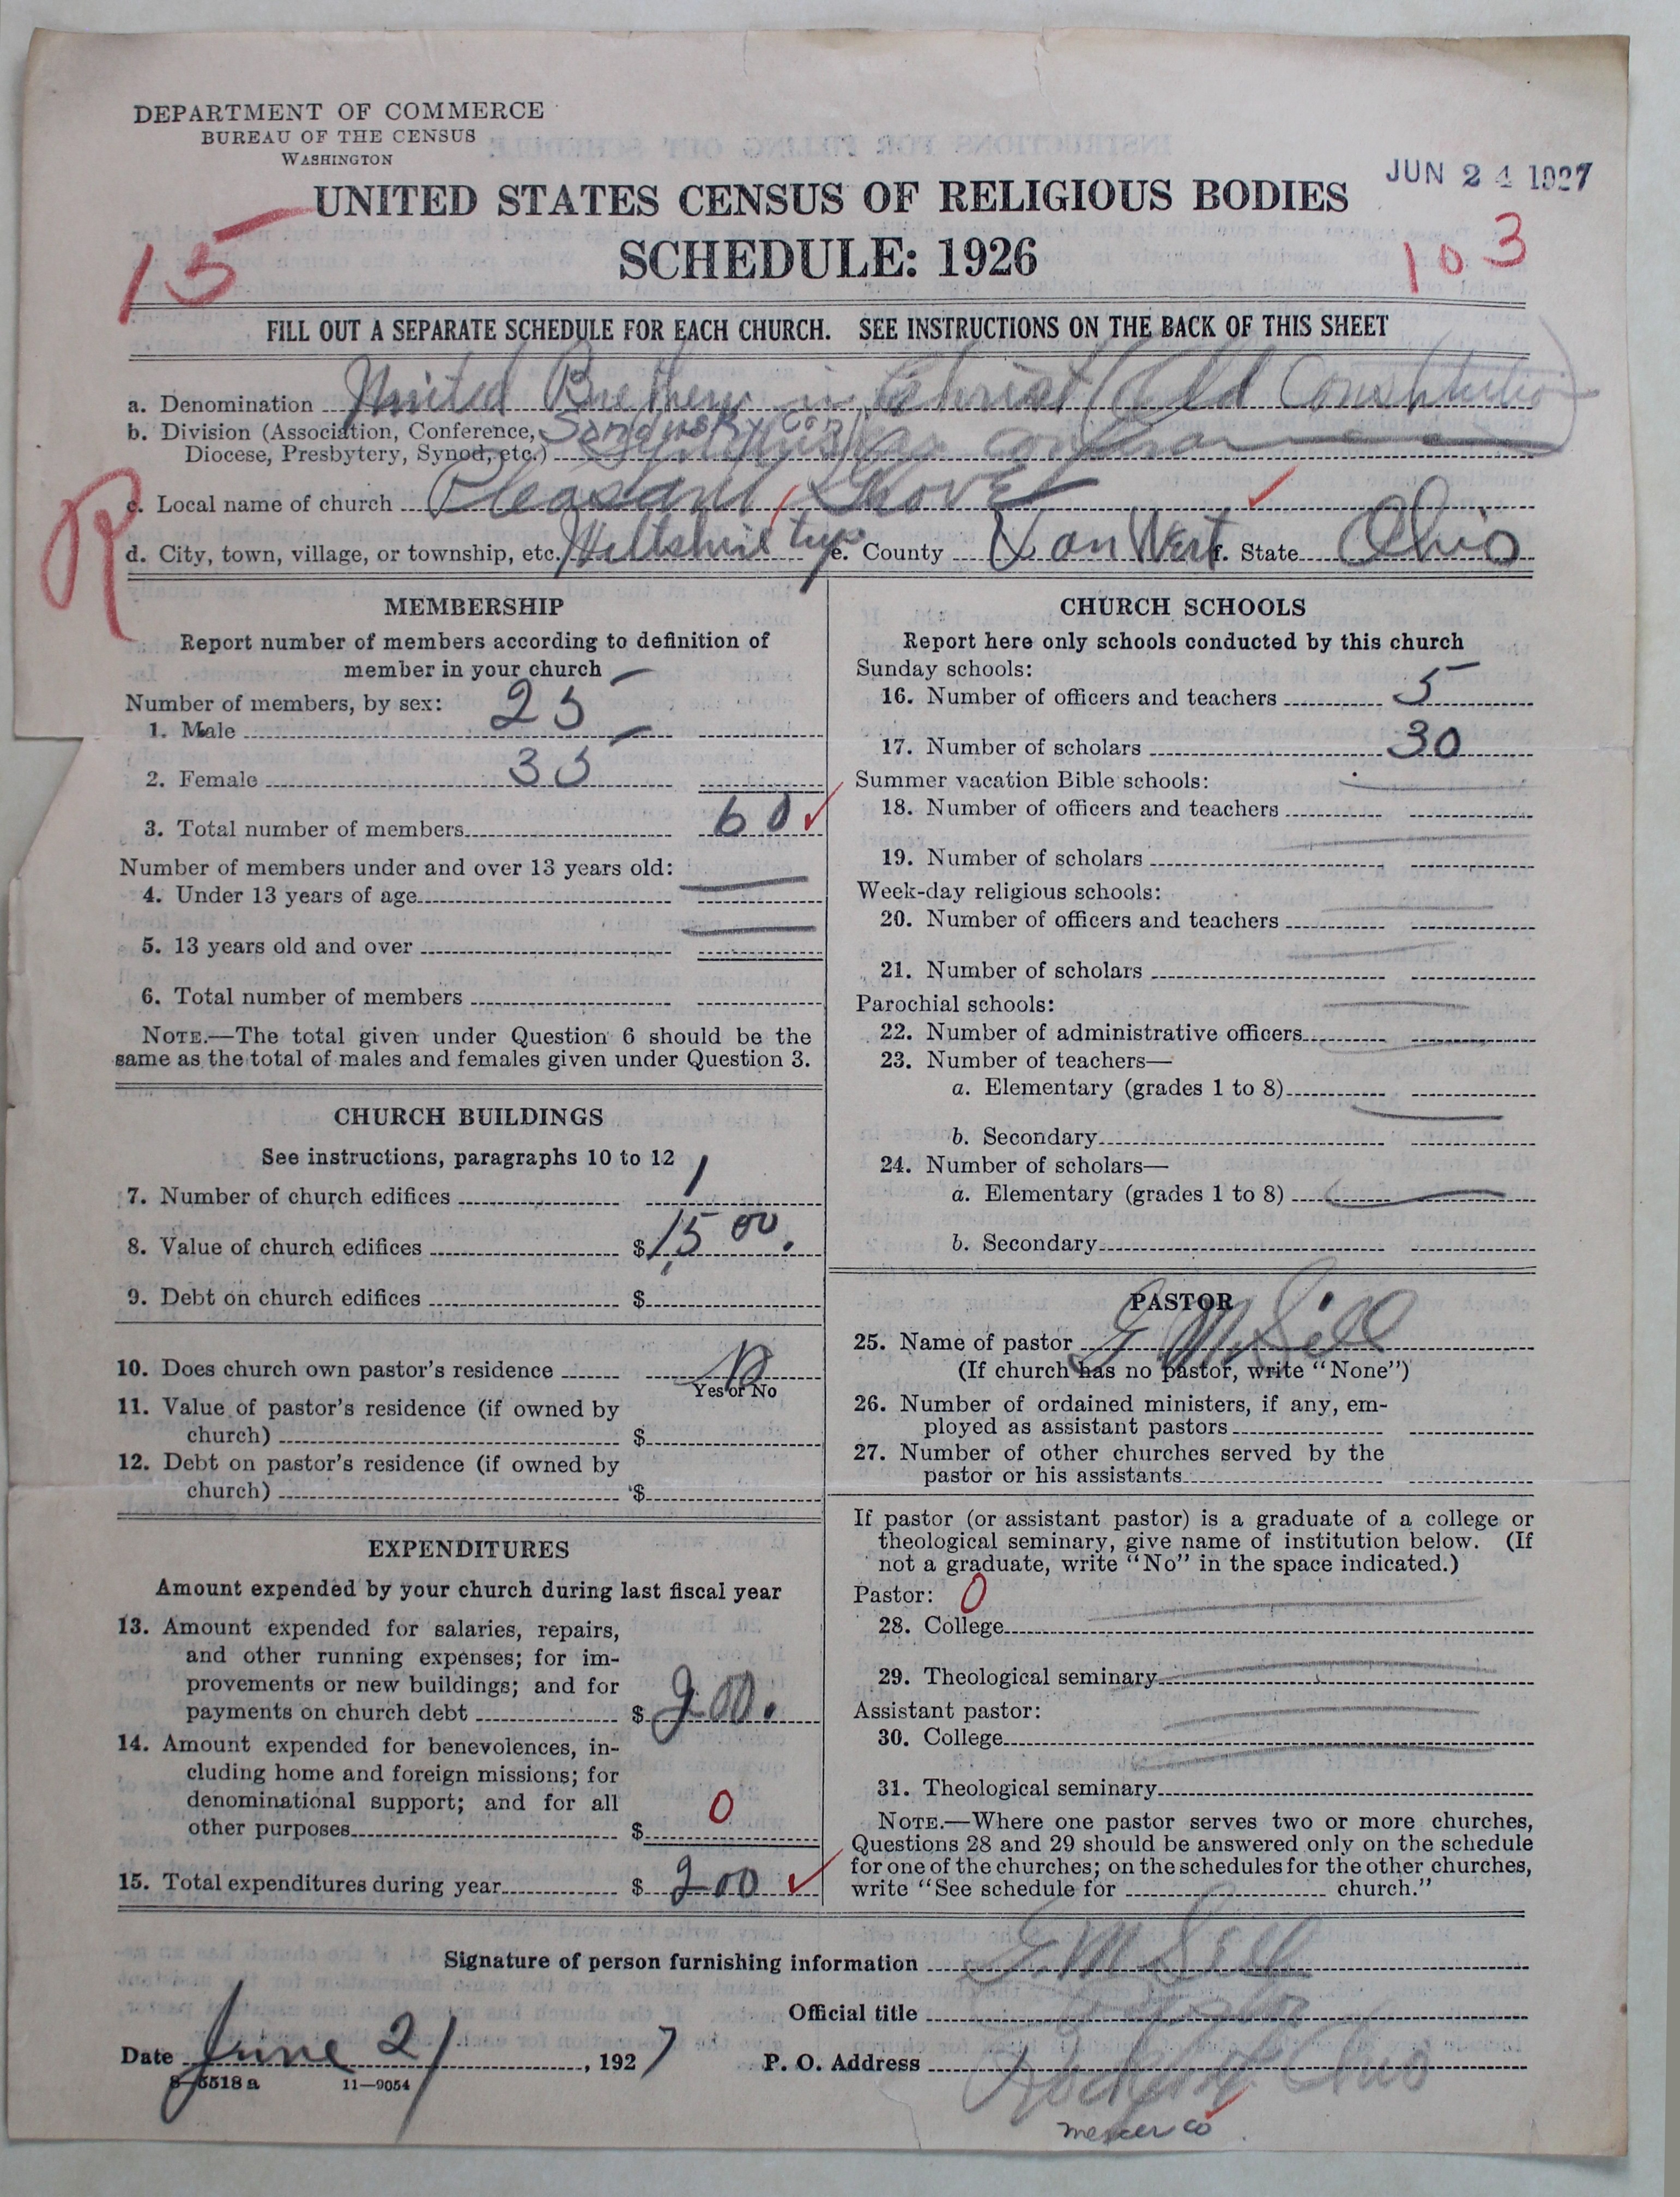 DEPARTMENT OF COMMERCE
BUREAU OF THE CENSUS
WASHINGTON
JUN 24 1927
UNITED STATES CENSUS OF RELIGIOUS BODIES
SCHEDULE: 1926
15
103
FILL OUT A SEPARATE SCHEDULE FOR EACH CHURCH. SEE INSTRUCTIONS ON THE BACK OF THIS SHEET
a. Denomination United Brethren in Christ (Old Constitution)
b. Division (Association, Conference, Sandusky Con
Diocese, Presbytery, Synod, etc.)
R
c. Local name of church Pleasant Grove
d. City, town, village, or township, etc. Willshire twp e. County Van Wert f. State Ohio
MEMBERSHIP
Report number of members according to definition of
member in your church
Number of members, by sex:
1. Male 25
2. Female 35
3. Total number of members 60
Number of members under and over 13 years old:
4. Under 13 years of age
5. 13 years old and over
6. Total number of members
NOTE.—The total given under Question 6 should be the
same as the total of males and females given under Question 3.
CHURCH BUILDINGS
See instructions, paragraphs 10 to 12
7. Number of church edifices 1
8. Value of church edifices $1500.
9. Debt on church edifices $
10. Does church own pastor's residence No
Yes or No
11. Value of pastor's residence (if owned by
church) $
12. Debt on pastor's residence (if owned by
church) $
EXPENDITURES
Amount expended by your church during last fiscal year
13. Amount expended for salaries, repairs,
and other running expenses; for im-
provements or new buildings; and for
payments on church debt $ 200.
14. Amount expended for benevolences, in-
cluding home and foreign missions; for
denominational support; and for all
other purposes $ 0
15. Total expenditures during year $ 200
CHURCH SCHOOLS
Report here only schools conducted by this church
Sunday schools:
16. Number of officers and teachers 5
17. Number of scholars 30
Summer vacation Bible schools:
18. Number of officers and teachers
19. Number of scholars
Week-day religious schools:
20. Number of officers and teachers
21. Number of scholars
Parochial schools:
22. Number of administrative officers
23. Number of teachers—
a. Elementary (grades 1 to 8)
b. Secondary
24. Number of scholars—
a. Elementary (grades 1 to 8)
b. Secondary
PASTOR
25. Name of pastor G. M. Sill
(If church has no pastor, write "None")
26. Number of ordained ministers, if any, em-
ployed as assistant pastors
27. Number of other churches served by the
pastor or his assistants
If pastor (or assistant pastor) is a graduate of a college or
theological seminary, give name of institution below. (If
not a graduate, write "No" in the space indicated.)
Pastor: 0
28. College
29. Theological seminary
Assistant pastor:
30. College
31. Theological seminary
NOTE.—Where one pastor serves two or more churches,
Questions 28 and 29 should be answered only on the schedule
for one of the churches; on the schedules for the other churches,
write "See schedule for church."
Signature of person furnishing information G. M Sill
Official title Pastor
Date June 21, 1927 P. O. Address Rockford Ohio
8-5518a 11—9054
mercer co